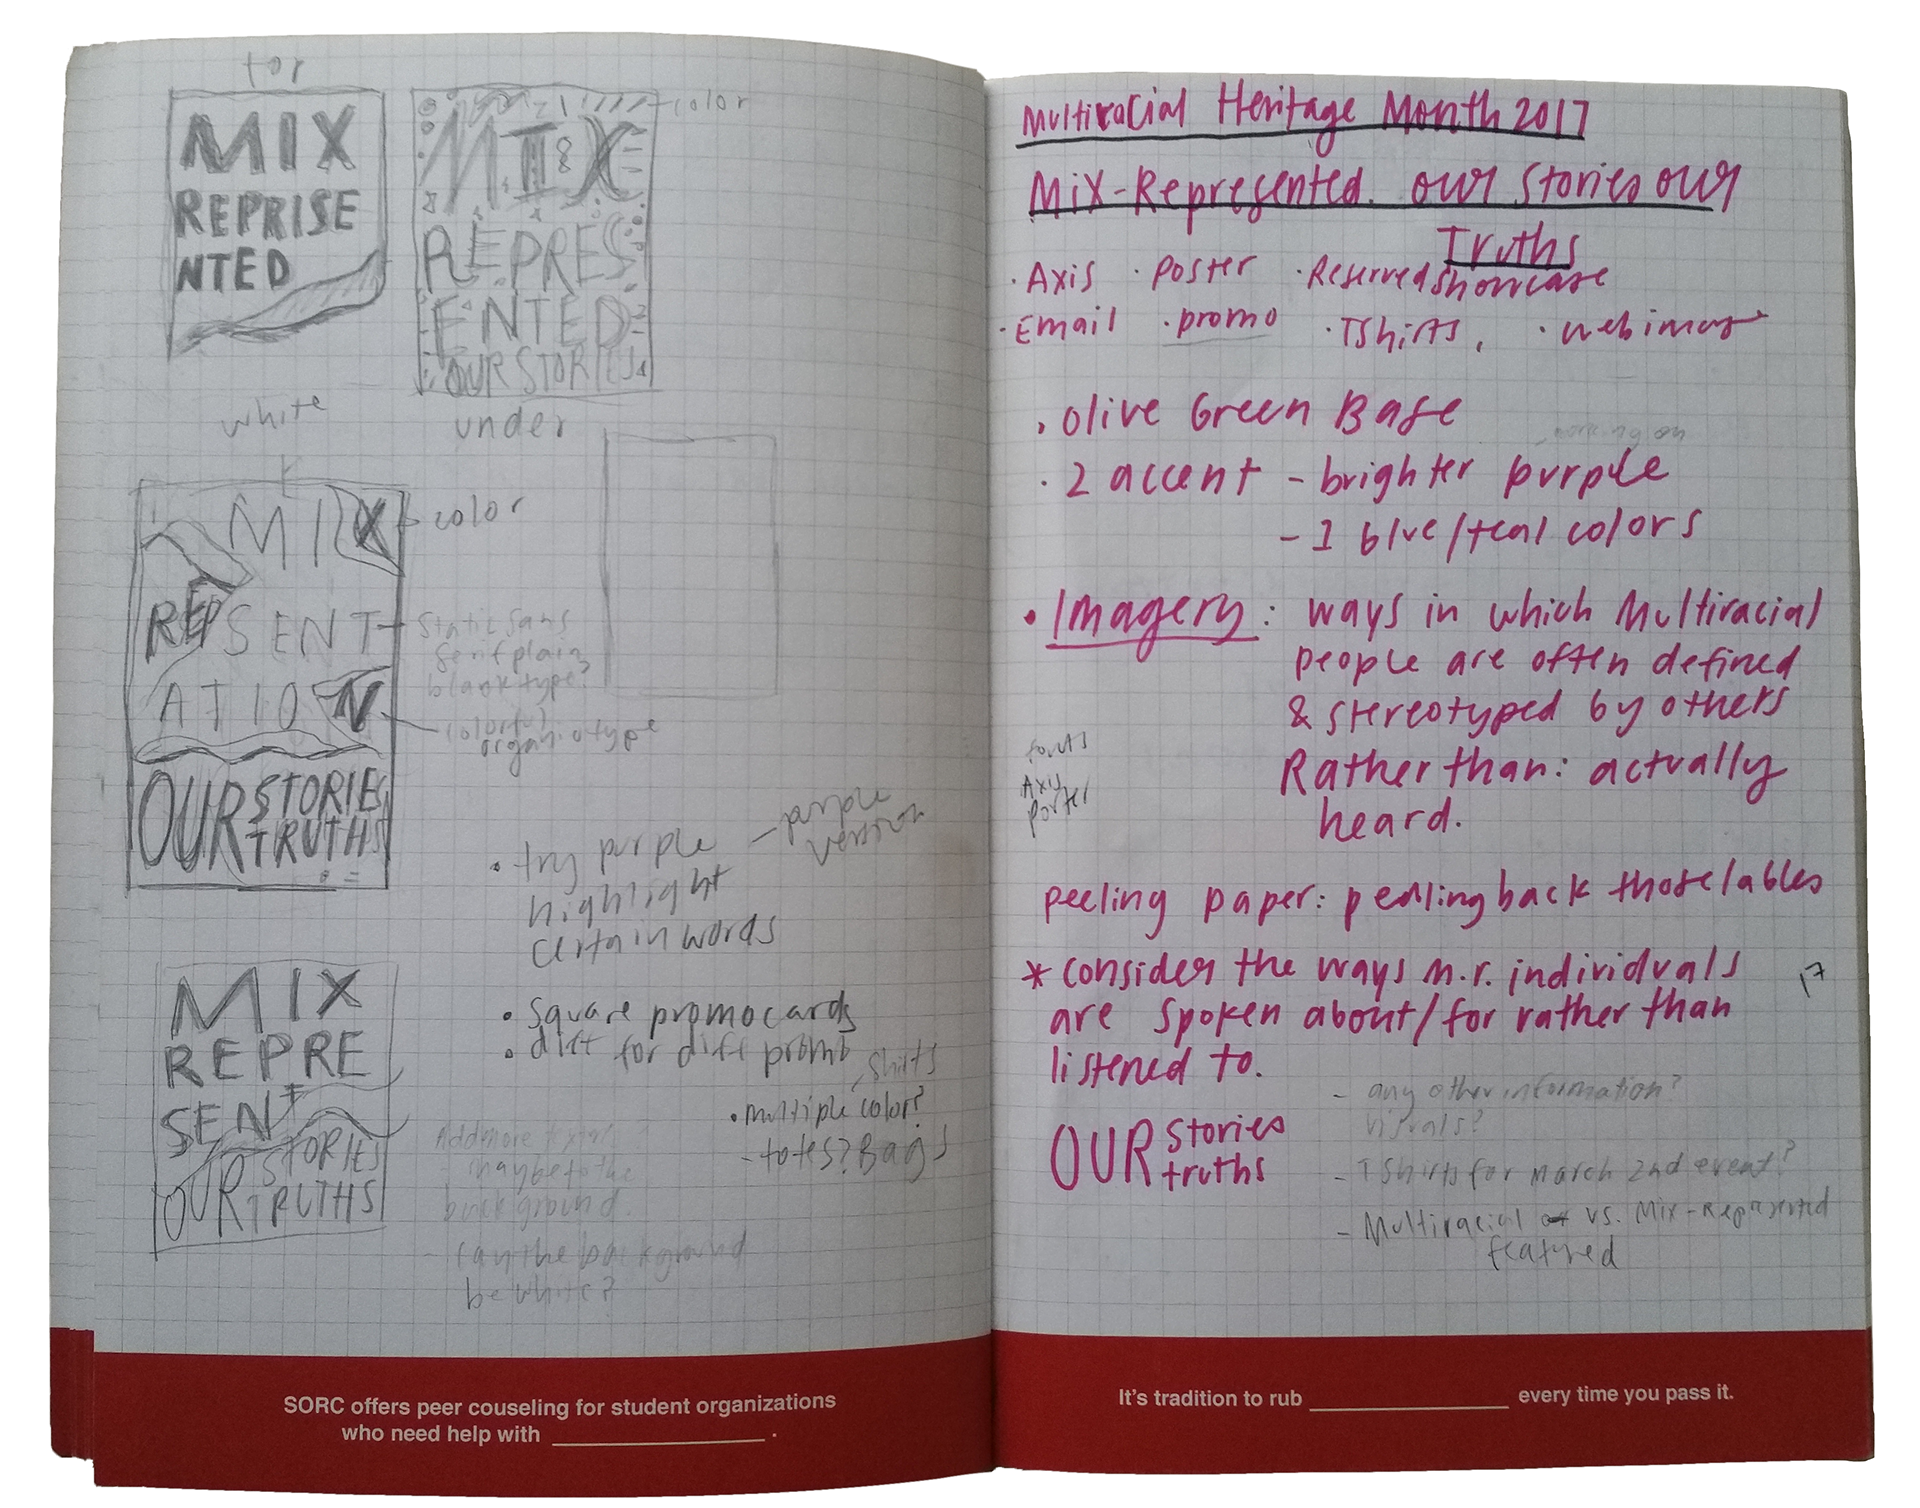 for
MIX
REPRISE
NTED
color
MIX
REPRES
ENTED
OUR STORIES
white
under
MIX
color
REPSENT
ATION
Static sans
serif plain
blank type?
colorful
organic type
OUR STORIES
TRUTHS
• try purple — purple
version
highlight
certain words
MIX
REPRE
SENT
OUR STORIES
TRUTHS
• square promo cards
• diff for diff promo
shirts
• multiple color?
- totes? Bags
Add more
maybe to the
background.
- can the background
be white?
SORC offers peer couseling for student organizations
who need help with ____________________ .
Multiracial Heritage Month 2017
Mix-Represented. our stories our
Truths
· Axis · poster · Reserved showcase
· Email · promo · TShirts, · web image
• olive Green Base
working on
· 2 accent - brighter purple
- 1 blue/teal colors
• Imagery: ways in which Multiracial
people are often defined
& stereotyped by others
Rather than: actually
heard.
fonts
Axis
porter
peeling paper: peeling back those lables
* consider the ways m.r. individuals
are spoken about/for rather than
listened to.
17
OUR stories
truths
- any other information?
visuals?
- T Shirts for March 2nd event?
- Multiracial vs. Mix-Represented
featured
It's tradition to rub ____________________ every time you pass it.